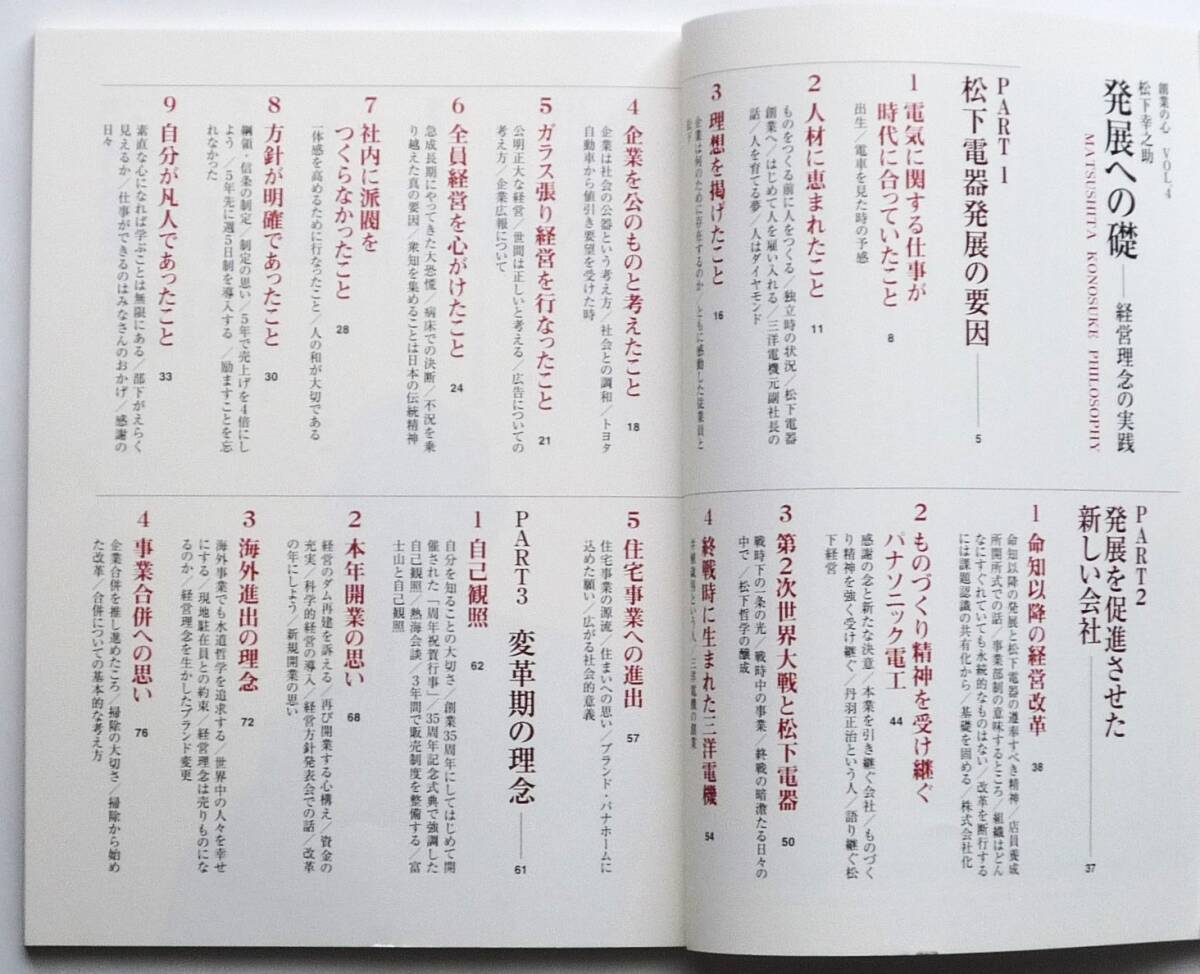 創業の心 VOL.4
松下幸之助
発展への礎——経営理念の実践
MATSUSHITA KONOSUKE PHILOSOPHY
PART 1
松下電器発展の要因 5
1 電気に関する仕事が
時代に合っていたこと 8
出生／電車を見た時の予感
2 人材に恵まれたこと 11
ものをつくる前に人をつくる／独立時の状況／松下電器
創業へ／はじめて人を雇い入れる／三洋電機元副社長の
話／人を育てる夢／人はダイヤモンド
3 理想を掲げたこと 16
企業は何のために存在するのか／ともに感動した従業員と
松下
4 企業を公のものと考えたこと 18
企業は社会の公器という考え方／社会との調和／トヨタ
自動車から値引き要望を受けた時
5 ガラス張り経営を行なったこと 21
公明正大な経営／世間は正しいと考える／広告についての
考え方／企業広報について
6 全員経営を心がけたこと 24
急成長期にやってきた大恐慌／病床での決断／不況を乗
り越えた真の要因／衆知を集めることは日本の伝統精神
7 社内に派閥を
つくらなかったこと 28
一体感を高めるために行なったこと／人の和が大切である
8 方針が明確であったこと 30
綱領・信条の制定／制定の思い／5年で売上げを4倍にし
よう／5年先に週5日制を導入する／励ますことを忘
れなかった
9 自分が凡人であったこと 33
素直な心になれば学ぶことは無限にある／部下がえらく
見えるか／仕事ができるのはみなさんのおかげ／感謝の
日々
PART2
発展を促進させた
新しい会社 37
1 命知以降の経営改革 38
命知以降の発展と松下電器の遵奉すべき精神／店員養成
所開所式での話／事業部制の意味するところ／組織はどん
なにすぐれていても永続的なものはない／改革を断行する
には課題認識の共有化から／基礎を固める／株式会社化
2 ものづくり精神を受け継ぐ
パナソニック電工 44
感謝の念と新たな決意／本業を引き継ぐ会社／ものづく
り精神を強く受け継ぐ／丹羽正治という人／語り継ぐ松
下経営
3 第2次世界大戦と松下電器 50
戦時下の一条の光／戦時中の事業／終戦の暗澹たる日々の
中で／松下哲学の醸成
4 終戦時に生まれた三洋電機 54
井植歳男という人／三洋電機の創業
5 住宅事業への進出 57
住宅事業の源流／住まいへの思い／ブランド・パナホームに
込めた願い／広がる社会的意義
PART3 変革期の理念 61
1 自己観照 62
自分を知ることの大切さ／創業35周年にしてはじめて開
催された「周年祝賀行事」／35周年記念式典で強調した
自己観照／熱海会談／3年間で販売制度を整備する／富
士山と自己観照
2 本年開業の思い 68
経営のダム再建を訴える／再び開業する心構え／資金の
充実／科学的経営の導入／経営方針発表会での話／改革
の年にしよう／新規開業の思い
3 海外進出の理念 72
海外事業でも水道哲学を追求する／世界中の人々を幸せ
にする／現地駐在員との約束／経営理念は売りものにな
るのか／経営理念を生かしたブランド変更
4 事業合併への思い 76
企業合併を推し進めたころ／掃除の大切さ／掃除から始め
た改革／合併についての基本的な考え方